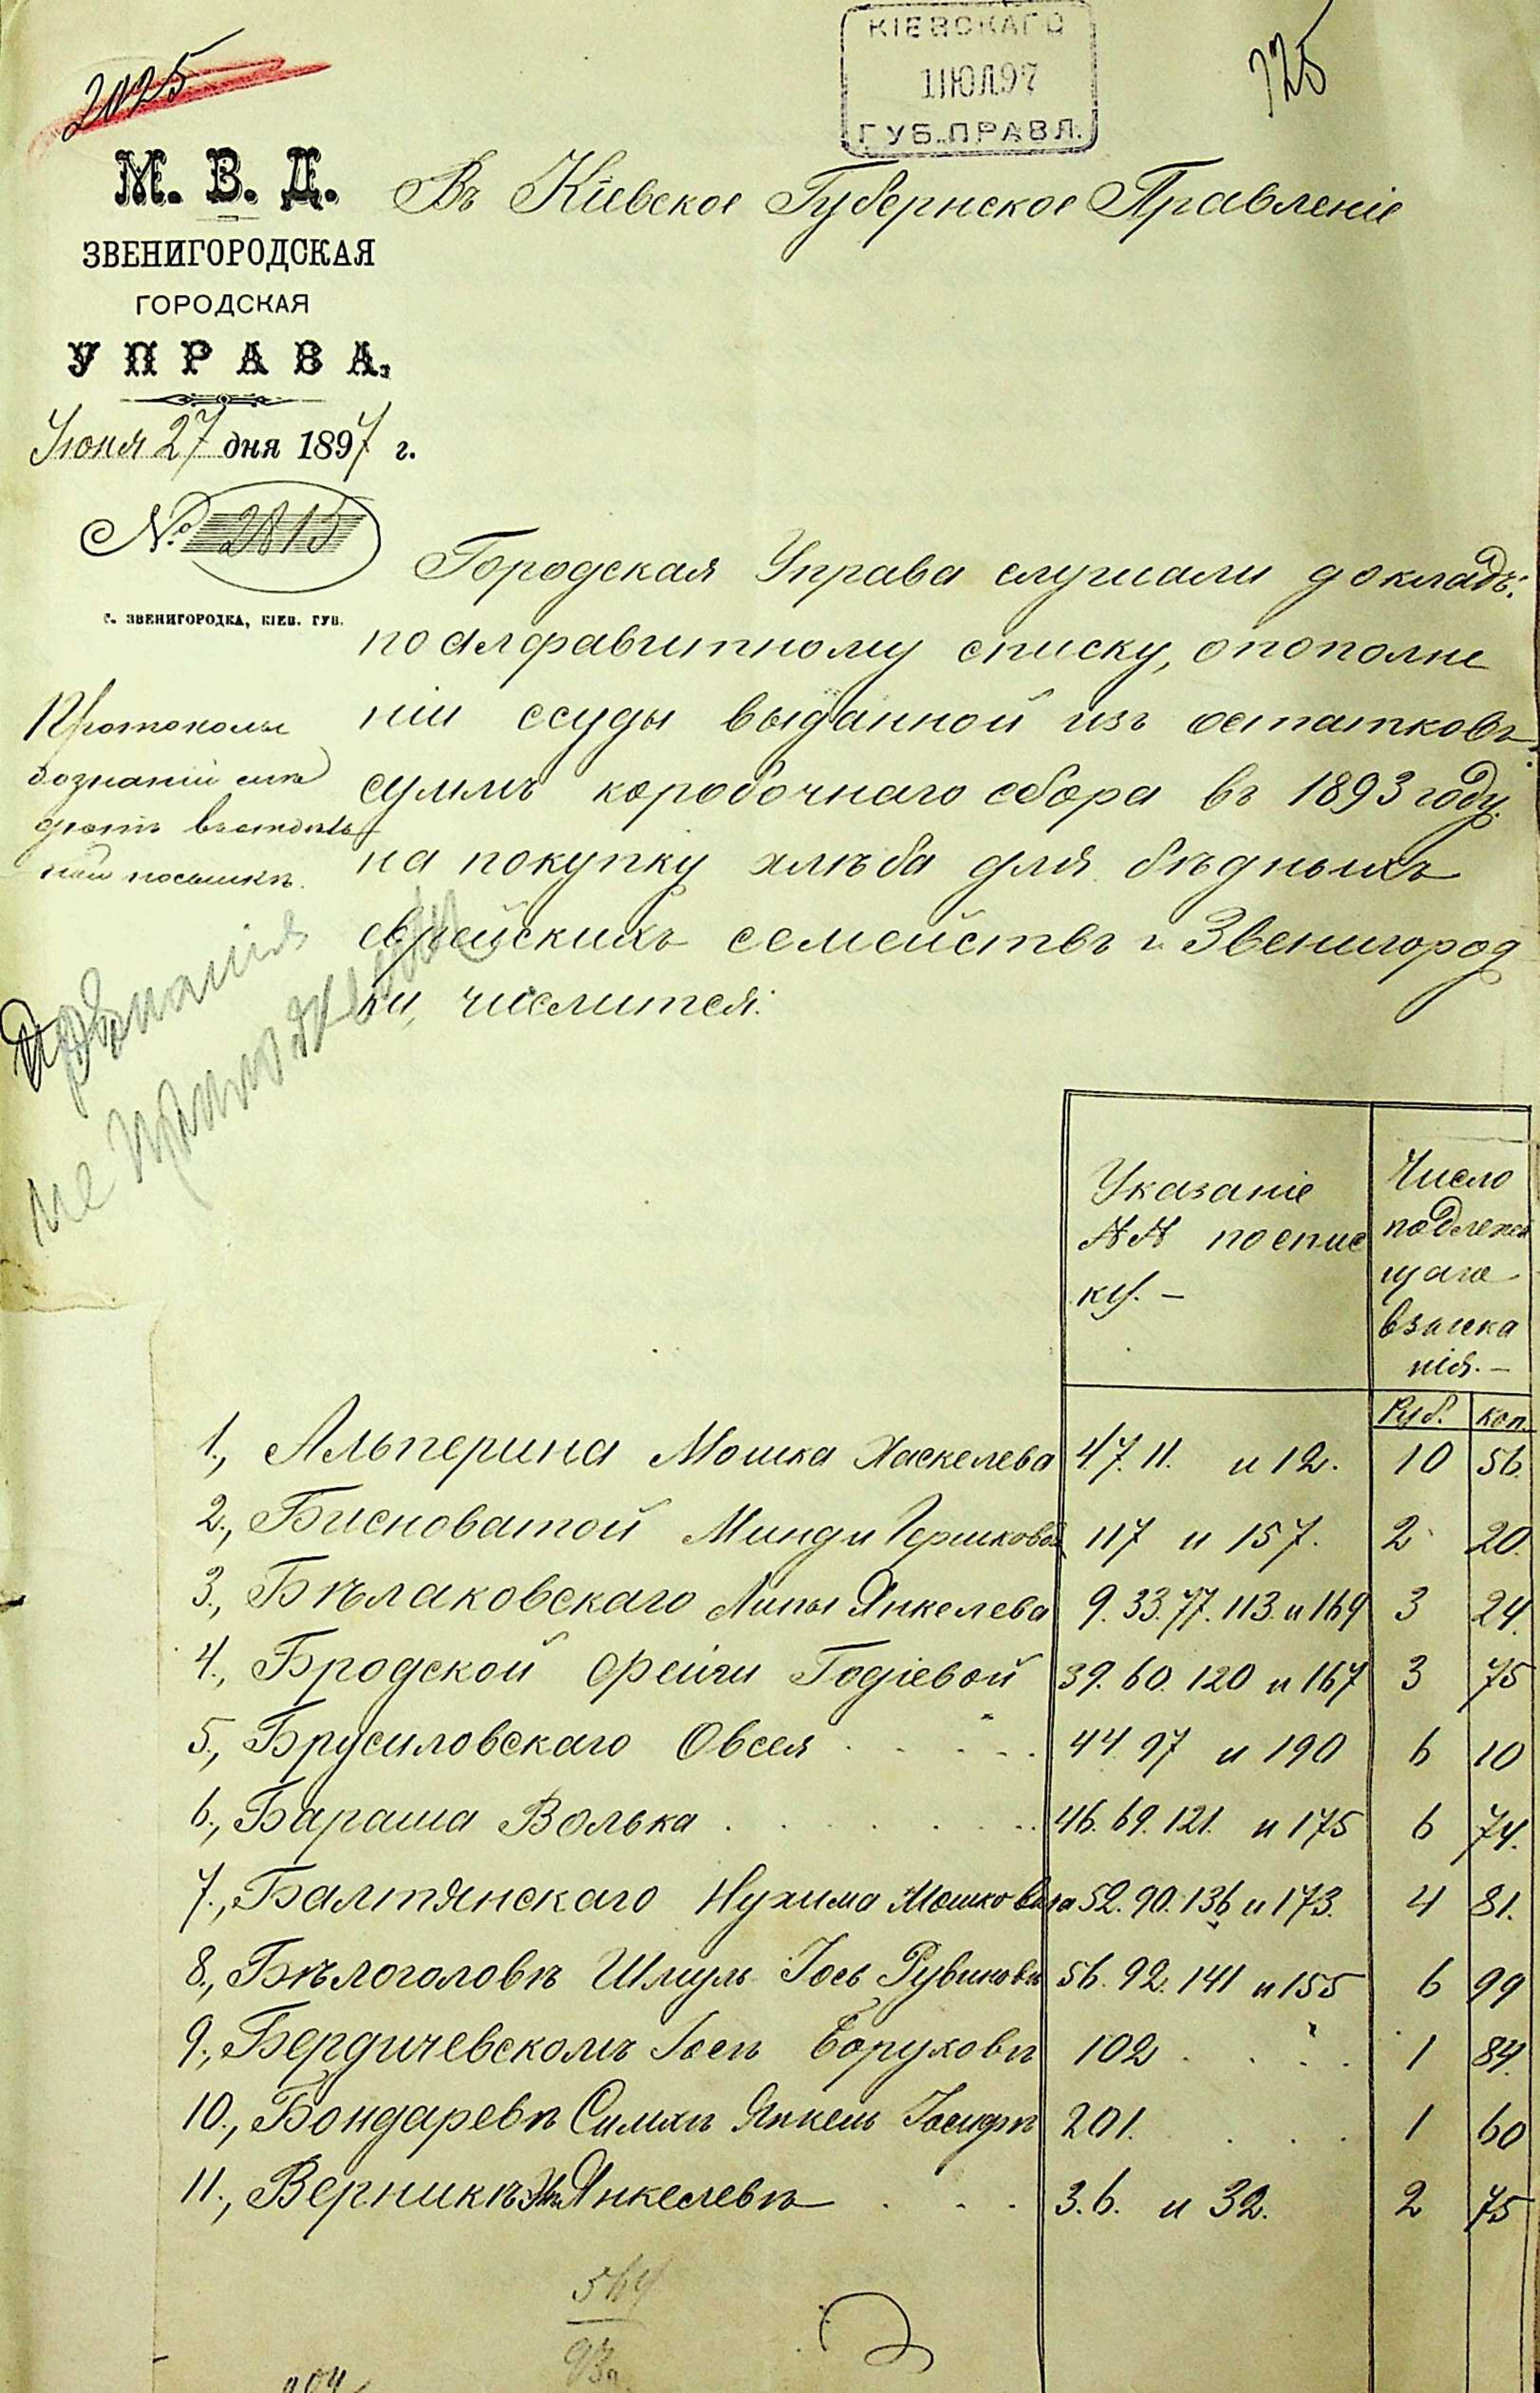 2025
КІЕВСКАГО
1 ІЮЛ 97
ГУБ. ПРАВЛ.
725
М. В. Д.
ЗВЕНИГОРОДСКАЯ
ГОРОДСКАЯ
УПРАВА,
Іюня 27 дня 1897 г.
№ 2815
г. ЗВЕНИГОРОДКА, КІЕВ. ГУБ.
Въ Кіевское Губернское Правленіе
Городская Управа слушали докладъ:
по алфавитному списку, о пополне
ніи ссуды выданной изъ остатковъ
суммъ коробочнаго сбора въ 1893 году
на покупку хлѣба для бѣдныхъ
еврейскихъ семействъ г. Звенигород
ки, числится:
Протоколы
дознаній слѣ
дуютъ
посылкѣ.
дознанія
не приложены
Указаніе
№№ по спис
ку. —
Число
подлежа
щаго
взыска
нія. —
Руб. Коп.
1., Альперина Мошка Хаскелева 47. 11. и 12. 10 56.
2., Бисноватой Минди Гершковой 117 и 157. 2 20.
3., Бѣлаковскаго Липы Янкелева 9. 33. 77. 113. и 169 3 24.
4., Бродской Фейги Годіевой 39. 60. 120 и 167 3 75
5., Брусиловскаго Овсея . . . . . 44 97 и 190 6 10
6., Бараша Волька . . . . . . . 46. 69. 121. и 175 6 74.
7., Балтянскаго Нухима Мошковича 52. 90. 136 и 173. 4 81.
8., Бѣлоголовѣ Шмуль Іось Рувиновѣ 56. 92. 141 и 155 6 99
9., Бердичевскомъ Іосѣ Боруховѣ 102 . . . . 1 84.
10., Бондаревѣ Симхѣ Янкель Іосифѣ 201. . . . 1 60
11., Верникѣ Янкелевѣ . . . 3. 6. и 32. 2 75